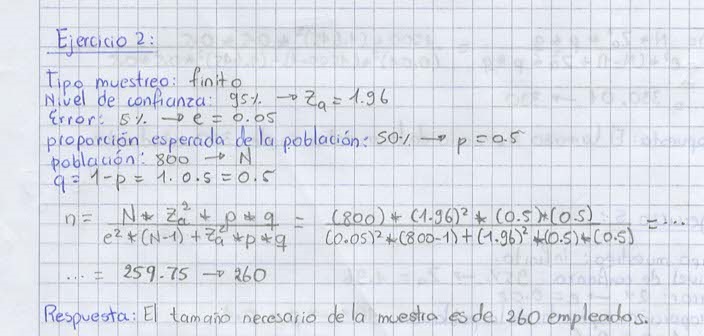 Ejercicio 2:
Tipo muestreo: finito
Nivel de confianza: 95% → Za = 1.96
Error: 5% → e = 0.05
proporción esperada de la población: 50% → p = 0.5
población: 800 → N
q = 1-p = 1. 0.5 = 0.5
n = N * Za² * p * q / e² * (N-1) + Za² * p * q = (800) * (1.96)² * (0.5) * (0.5) / (0.05)² * (800-1) + (1.96)² * (0.5) * (0.5) = ...
... = 259.75 → 260
Respuesta: El tamaño necesario de la muestra es de 260 empleados.